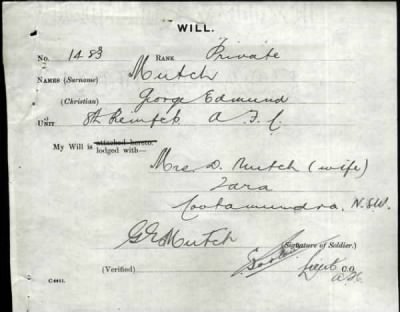 WILL.
No. 1483 RANK Private
2
NAMES (Surname) Mutch
(Christian) George Edmund
UNIT 8th Reinfcts A. F. C.
My Will is attached hereto.
lodged with—
Mrs. D. Mutch (wife)
Zara
Cootamundra. N.S.W.
G E Mutch (Signature of Soldier.)
(Verified) Lieut C.O.
C4481.